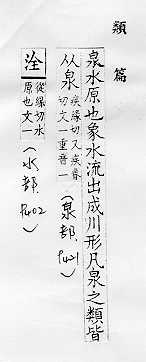 類篇
泉水原也象水流出成川形凡泉之類皆
从泉
疾緣切又疾眷
切文一重音一
(泉部, P421)
洤
從緣切水
原也文一
(水部, P402)